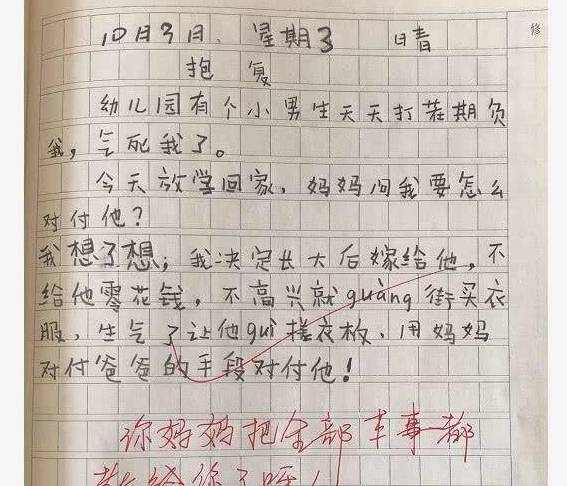 修
10月3日. 星期3 晴
抱复
幼儿园有个小男生天天打茬期负
我,气死我了。
今天放学回家,妈妈问我要怎么
对付他?
我想了想;我决定长大后嫁给他,不
给他零花钱,不高兴就guàng街买衣
服、生气了让他guì搓衣板、用妈妈
对付爸爸的手段对付他!
你妈妈把全部本事都
教给你了呀!